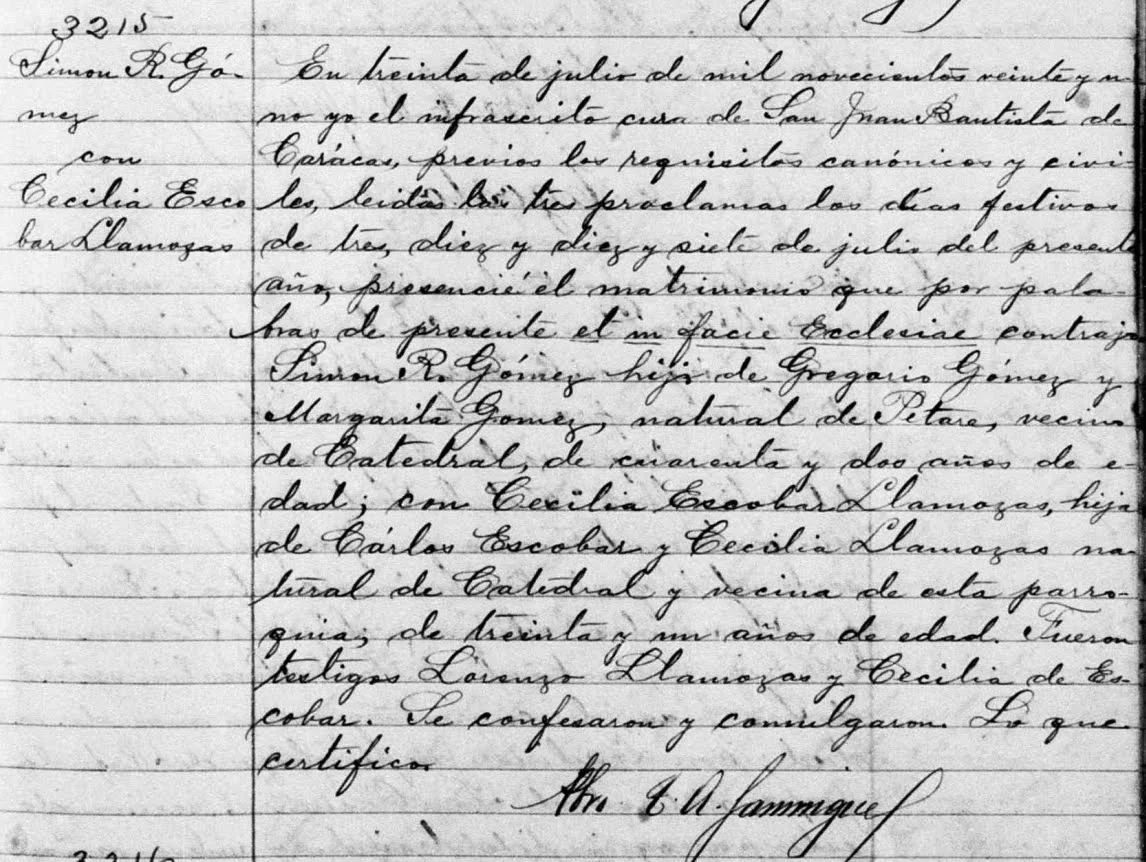 3215
Simon R. Gó-
mez
con
Cecilia Esco
bar Llamozas
En treinta de julio de mil novecientos veinte y u-
no yo el infrascrito cura de San Juan Bautista de
Carácas, previos los requisitos canónicos y civi-
les, leidas las tres proclamas los dias festivos
de tres, diez y diez y siete de julio del presente
año, presencié el matrimonio que por pala-
bras de presente et in facie Ecclesiae contrajo
Simon R. Gómez hijo de Gregorio Gómez y
Margarita Gomez, natural de Petare, vecino
de Catedral, de cuarenta y dos años de e-
dad; con Cecilia Escobar Llamozas, hija
de Cárlos Escobar y Cecilia Llamozas na-
tural de Catedral y vecina de esta parro-
quia; de treinta y un años de edad. Fueron
testigos Lorenzo Llamozas y Cecilia de Es-
cobar. Se confesaron y comulgaron. Lo que
certifico.
Pbro. A. Sanmiguel